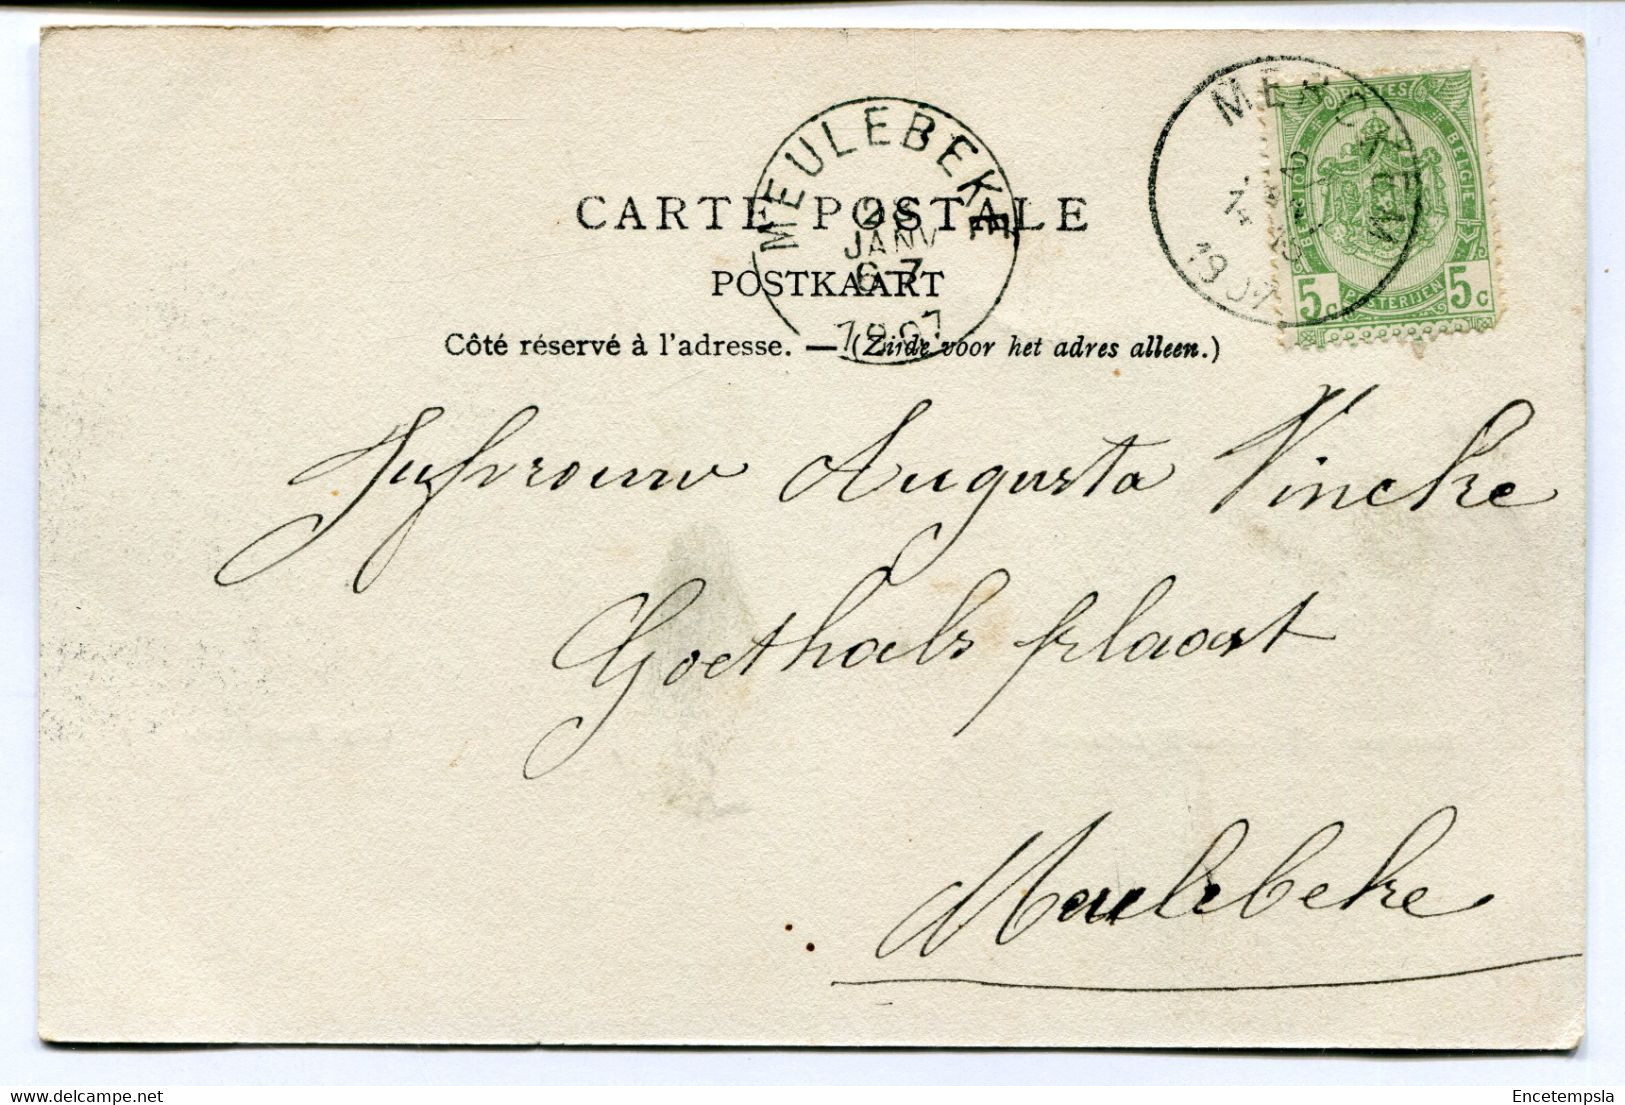 MEULEBEKE
JANV
6-7
CARTE POSTALE
POSTKAART
Côté réservé à l'adresse. — (Zijde voor het adres alleen.)
POSTES
BELGIQUE BELGIË
POSTERIJEN
5c 5c
Juffrouw Augusta Vincke
Goethals plaats
Meulebeke
delcampe.net
Encetempsla